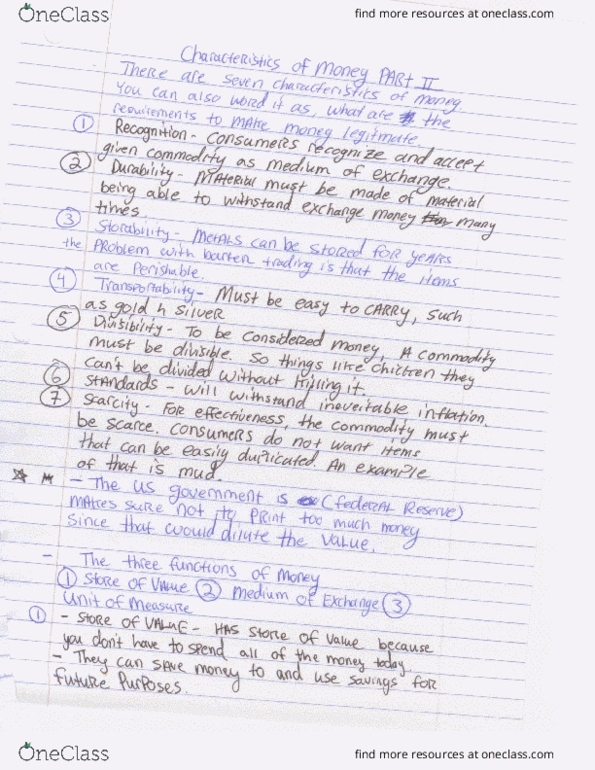 OneClass find more resources at oneclass.com
Characteristics of Money PART II
There are seven characteristics of money
You can also word it as, what are the
requirements to make money legitmate.
① Recognition - Consumers recognize and accept
given commodity as medium of exchange.
② Durability - Material must be made of material
being able to withstand exchange money many
times.
③ Storability - Metals can be stored for years
the problem with barter trading is that the items
are perishable.
④ Transportability - Must be easy to carry, such
as gold n silver
⑤ Divisibility - To be considered money, A commodity
must be divisible. So things like chicken they
can't be divided without killing it.
⑥ Standards - will withstand inoveitable inflation.
⑦ Scarcity - For effectiveness, the commodity must
be scarce. Consumers do not want items
that can be easily duplicated. An example
of that is mud.
- The US government is (federal Reserve)
makes sure not to print too much money
Since that would dilute the value.
- The three functions of Money
① Store of Value ② Medium of Exchange ③
Unit of Measure
① - Store of Value - Has store of value because
you don't have to spend all of the money today.
- They can save money to and use savings for
future purposes.
OneClass find more resources at oneclass.com